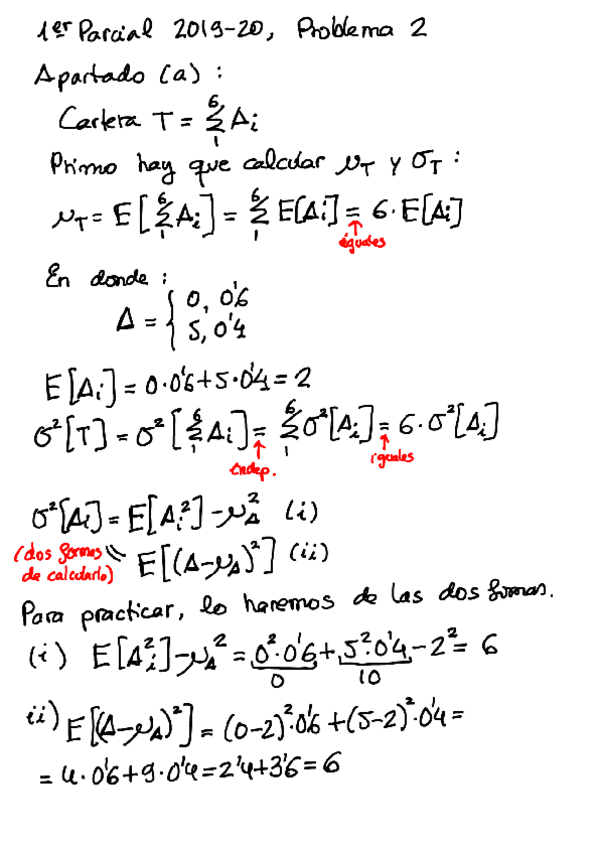 1er Parcial 2019-20, Problema 2
Apartado (a) :
Cartera T = 6∑1 Ai
Primo hay que calcular μT y σT :
μT = E[6∑1 Ai] = 6∑1 E[Ai] = 6·E[Ai]
iguales
En donde :
A = { 0, 0'6
5, 0'4
E[Ai] = 0·0'6+5·0'4 = 2
σ²[T] = σ²[6∑1 Ai] = 6∑1 σ²[Ai] = 6·σ²[Ai]
indep. iguales
σ²[Ai] = E[Ai²] - μA² (i)
(dos formas de calcularlo)
E[(A-μA)²] (ii)
Para practicar, lo haremos de las dos formas.
(i) E[Ai²]-μA² = 0²·0'6+5²·0'4-2² = 6
0 10
ii) E[(A-μA)²] = (0-2)²·0'6+(5-2)²·0'4 =
= 4·0'6+9·0'4=2'4+3'6=6